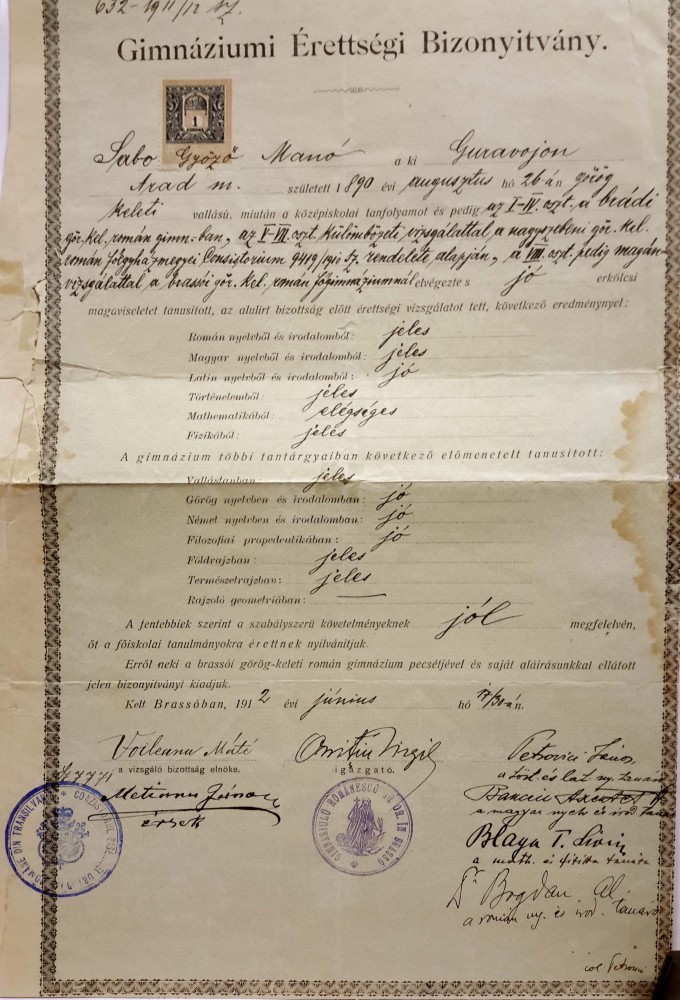 632-1911/12 sz.
Gimnáziumi Érettségi Bizonyitvány.
1
KORONA
Sabo Győző Manó a ki Guravojon
Arad m. született 1890 évi augusztus hó 26-án görög
keleti vallású, miután a középiskolai tanfolyamot és pedig az I-IV. oszt. a brádi
gör. kel. román gimn=ban, az V-VII. oszt. külömbözeti vizsgálattal a nagyszebeni gör. kel.
román főegyházmegyei Consistorium 9419/1911 Sz. rendelete alapján, a VIII. oszt. pedig magán=
vizsgálattal a brassói gör. kel. román főgimnaziumnál elvégezte s jó erkölcsi
magaviseletet tanusitott, az alulirt bizottság előtt érettségi vizsgálatot tett, következő eredménynyel:
Román nyelvből és irodalomból: jeles
Magyar nyelvből és irodalomból: jeles
Latin nyelvből és irodalomból: jó
Történelemből: jeles
Mathematikából: elégséges
Fizikából: jeles
A gimnázium többi tantárgyaiban következő előmenetelt tanusitott:
Vallástanban: jeles
Görög nyelvben és irodalomban: jó
Német nyelvben és irodalomban: jó
Filozofiai propedeutikában: jó
Földrajzban: jeles
Természetrajzban: jeles
Rajzoló geometriában: —
A fentebbiek szerint a szabályszerü követelményeknek jól megfelelvén,
őt a főiskolai tanulmányokra érettnek nyilvánitjuk.
Erről neki a brassói görög-keleti román gimnázium pecsétjével és saját aláirásunkkal ellátott
jelen bizonyitványt kiadjuk.
Kelt Brassóban, 1912 évi június hó 17/30 án.
Voileanu Máté
a vizsgáló bizottság elnöke.
Metianu János
érsek
Onitiu Virgil
igazgató.
Petrovici János,
a tört. és lat. ny. tanára
Banciu Axente
a magyar nyelv és irod. tanára
Blaga T. Liviu
a math. és fizika tanára
Dr. Bogdan Al.
a román ny. és irod. tanára
GIMNASIULO ROMANESCO GR. OR. IN BRASSO
col. Petrovici